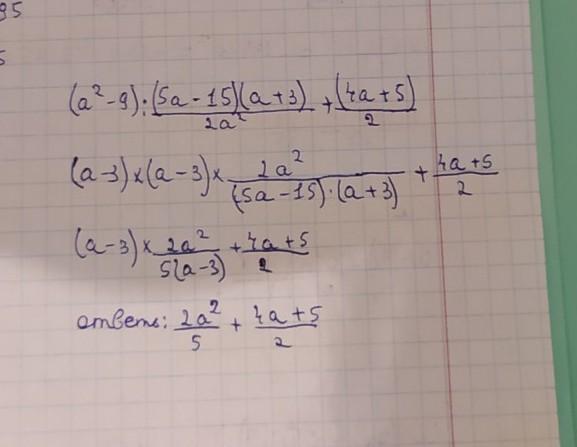 95
5
(a²-9):(5a-15)(a+3)/2a² + (4a+5)/2
(a-3)×(a-3)×2a²/(5a-15)·(a+3) + 4a+5/2
(a-3)×2a²/5(a-3) + 4a+5/2
ответ: 2a²/5 + 4a+5/2